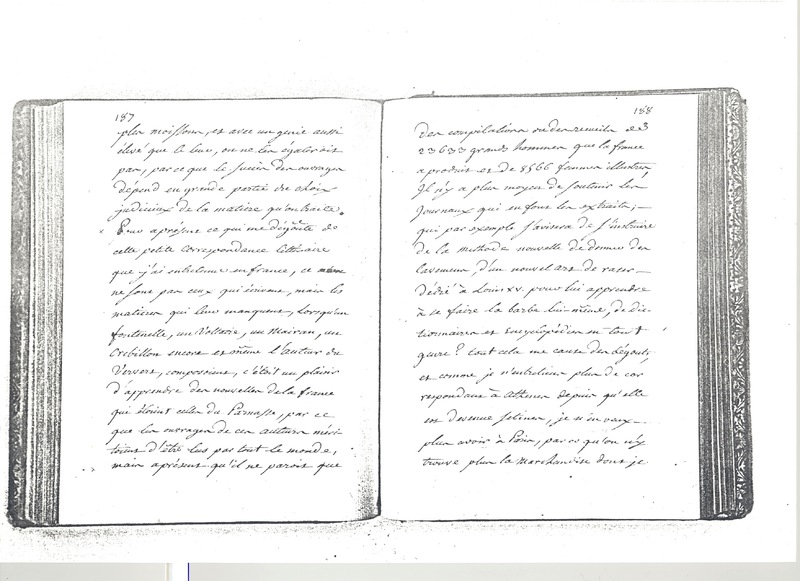 187
plus moissonn, et avec un genie aussi
élevé que le leur, on ne les égaleroit
pas, parce que le succès des ouvrages
dépend en grande partie du choix
judicieux de la matiere qu'on traite.
apresent ce qui me dégoûte de
cette petite correspondance litteraire
que j'ai entretenue en france, ce
ne sont pas ceux qui écrivent, mais les
matieres qui leur manquent, lorsqu'un
fontenelle, un Voltaire, un Mairan, un
Crebillon encore et même l'auteur du
Ververt, composoient, c'étoit un plaisir
d'apprendre des nouvelles de la france
qui étoient celles du Parnasse, par ce
que les ouvrages de ces auteurs meri-
toient d'être lus par tout le monde,
mais apresent qu'il ne paroit que
188
des compilations ou des recueils de
23633 grands hommes que la france
a produit et de 8566 femmes illustres
Il n'y a plus moyen de soutenir les
journaux qui en font les extraits;
qui par exemple s'avisera de s'instruire
de la methode nouvelle de donner des
lavemens, d'un nouvel art de raser
dédié à Louis XV. pour lui apprendre
à se faire la barbe lui-même, de dic-
tionnaires et Encyclopédies en tout
genre? tout cela me cause des dégouts
et comme je n'entretiens plus de cor
respondance à Athenes depuis qu'elle
est devenue Setines, je n'en veux
plus avoir à Paris, parce qu'on n'y
trouve plus la marchandise dont je